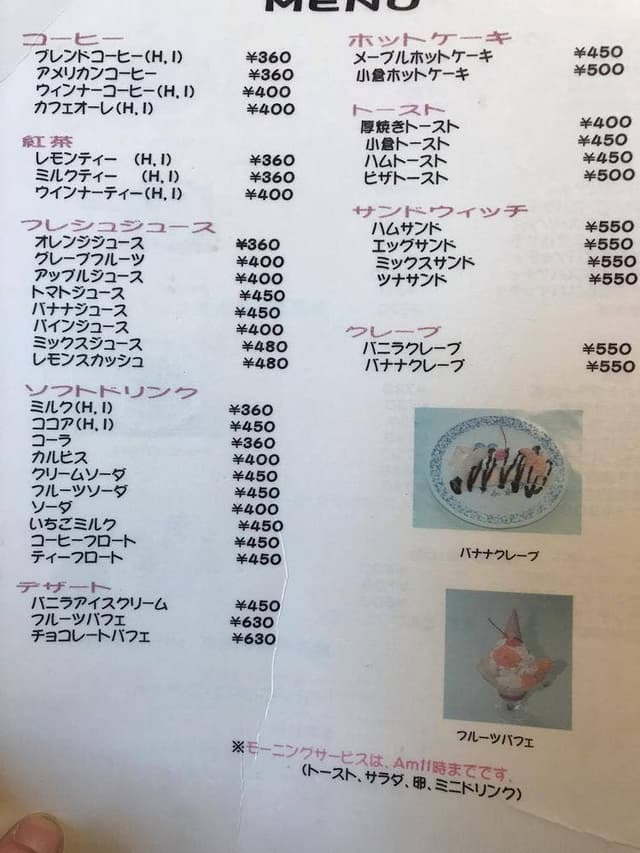 MENU
コーヒー
ブレンドコーヒー(H,I) ¥360
アメリカンコーヒー ¥360
ウィンナーコーヒー(H,I) ¥400
カフェオーレ(H,I) ¥400
紅茶
レモンティー (H,I) ¥360
ミルクティー (H,I) ¥360
ウインナーティー(H,I) ¥400
フレシュジュース
オレンジジュース ¥360
グレープフルーツ ¥400
アップルジュース ¥400
トマトジュース ¥450
バナナジュース ¥450
パインジュース ¥400
ミックスジュース ¥480
レモンスカッシュ ¥480
ソフトドリンク
ミルク(H,I) ¥360
ココア(H,I) ¥450
コーラ ¥360
カルピス ¥400
クリームソーダ ¥450
フルーツソーダ ¥450
ソーダ ¥400
いちごミルク ¥450
コーヒーフロート ¥450
ティーフロート ¥450
デザート
バニラアイスクリーム ¥450
フルーツパフェ ¥630
チョコレートパフェ ¥630
ホットケーキ
メープルホットケーキ ¥450
小倉ホットケーキ ¥500
トースト
厚焼きトースト ¥400
小倉トースト ¥450
ハムトースト ¥450
ピザトースト ¥500
サンドウィッチ
ハムサンド ¥550
エッグサンド ¥550
ミックスサンド ¥550
ツナサンド ¥550
クレープ
バニラクレープ ¥550
バナナクレープ ¥550
バナナクレープ
フルーツパフェ
※モーニングサービスは、Am11時までです。
(トースト、サラダ、卵、ミニドリンク)